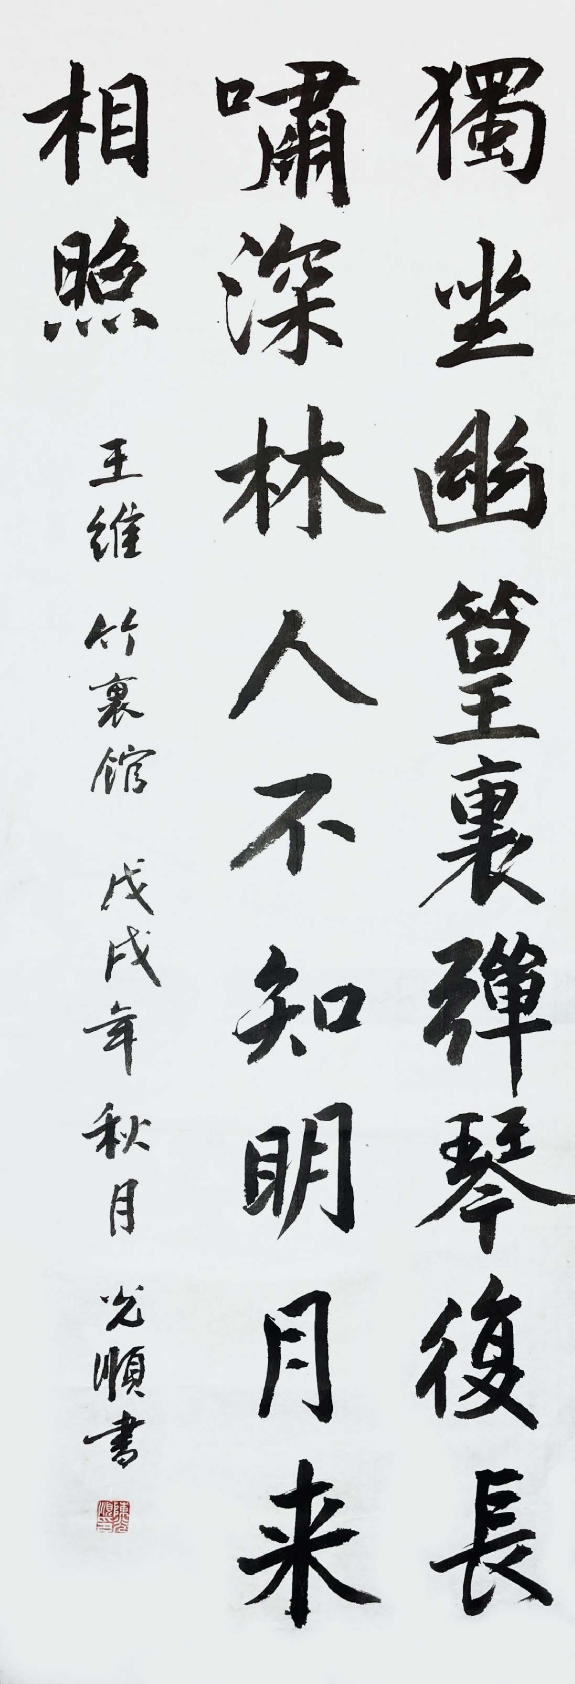 獨坐幽篁裏彈琴復長
嘯深林人不知明月来
相照
王維 竹裏館 戊戌年 秋月 光順書